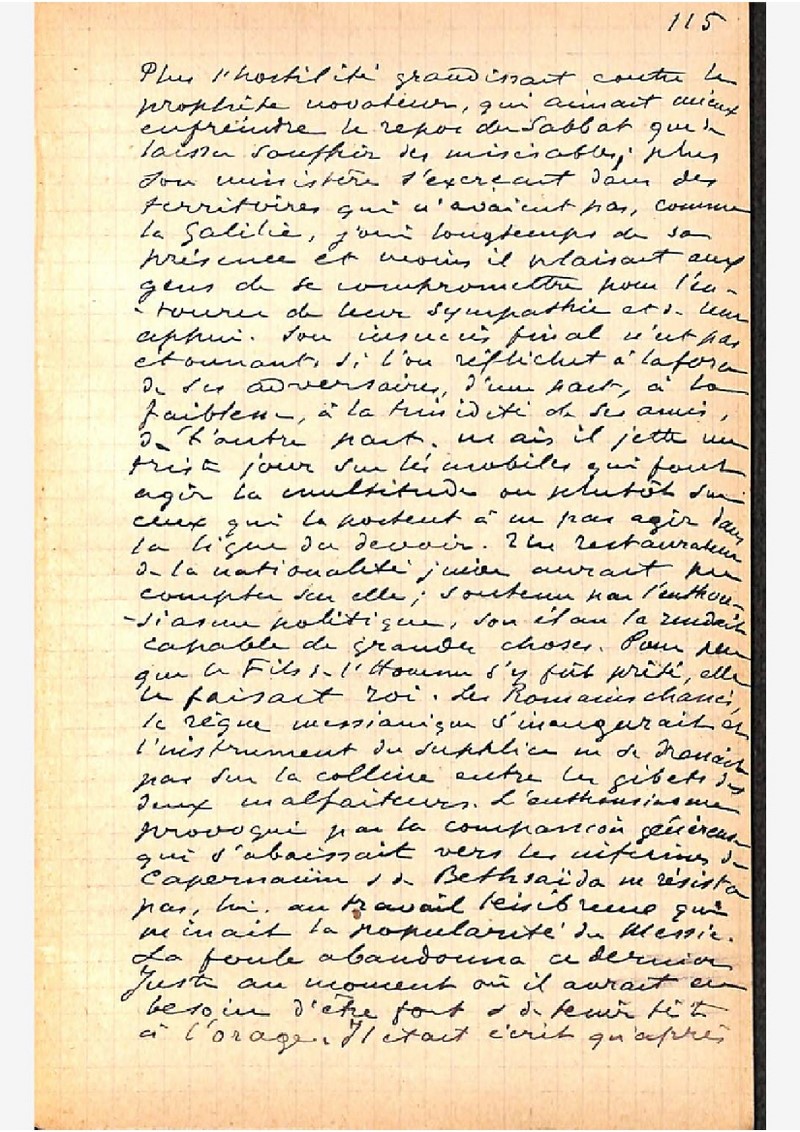 115
Plus l'hostilité grandissait contre le
prophète novateur, qui aimait mieux
enfreindre le repos du Sabbat que de
laisser souffrir des misérables; plus
son ministère s'exerçait dans des
territoires qui n'avaient pas, comme
la Galilée, joui longtemps de sa
présence et moins il plaisait aux
gens de se compromettre pour l'en-
-tourer de leur sympathie et de leur
appui. Son insuccès final n'est pas
étonnant, si l'on réfléchit à la force
de ses adversaires, d'une part, à la
faiblesse, à la timidité de ses amis,
de l'autre part. Mais il jette un
triste jour sur les mobiles qui font
agir la multitude ou plutôt sur
ceux qui la portent à ne pas agir dans
la ligne du devoir. Un restaurateur
de la nationalité juive aurait pu
compter sur elle; soutenu par l'enthou-
-siasme politique, son élan la rendait
capable de grandes choses. Pour peu
que le Fils de l'Homme s'y fût prêté, elle
le faisait roi. Les Romains chassés,
le règne messianique s'inaugurait et
l'instrument du supplice ne se dressait
pas sur la colline entre les gibets des
deux malfaiteurs. L'enthousiasme
provoqué par la compassion généreuse
qui s'abaissait vers les infirmes de
Capernaüm & de Bethsaïda ne résista
pas, lui, au travail qui
minait la popularité du Messie.
La foule abandonna ce dernier
juste au moment où il aurait eu
besoin d'être fort & de tenir tête
à l'orage. Il était écrit qu'après